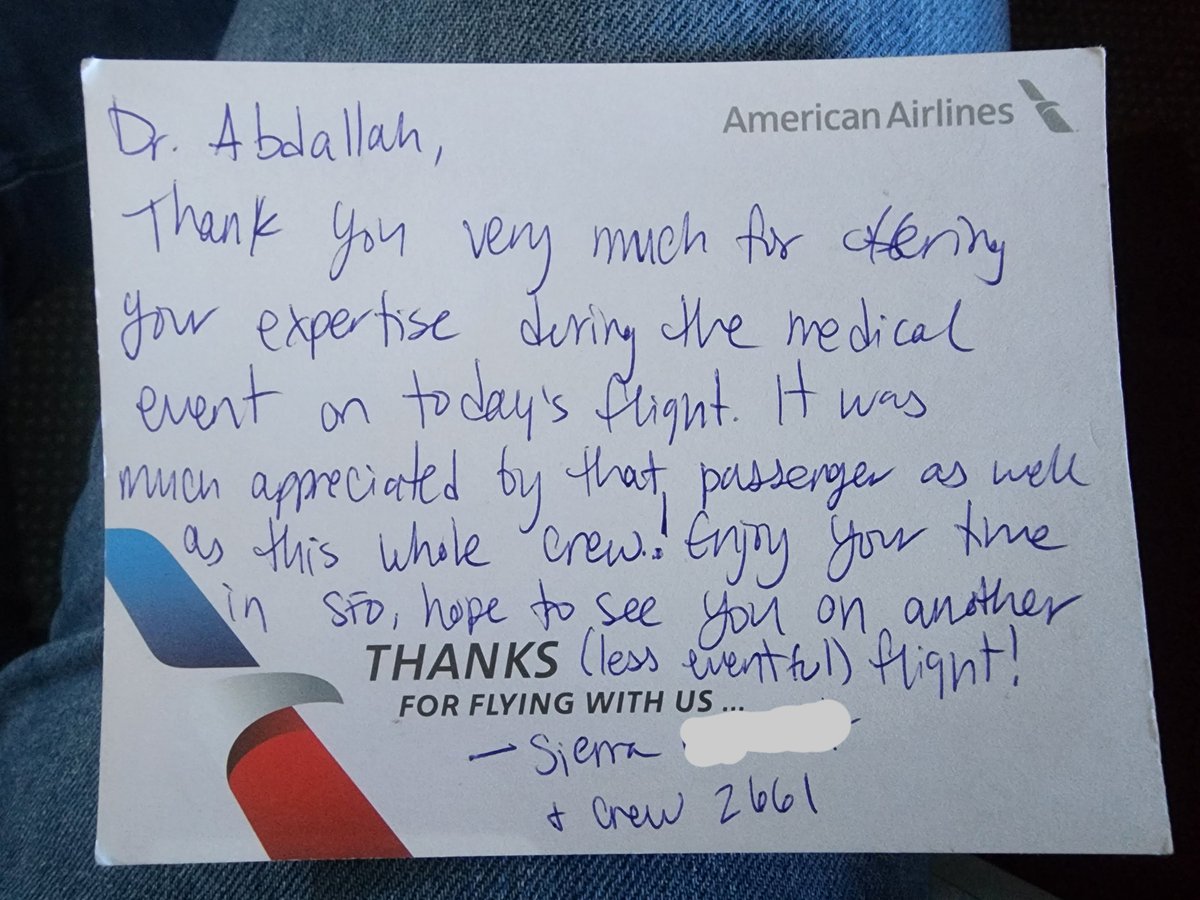 American Airlines
Dr. Abdallah,
Thank you very much for offering
your expertise during the medical
event on today's flight. It was
much appreciated by that passenger as well
as this whole crew! Enjoy your time
in SFO, hope to see you on another
(less eventful) flight!
THANKS
FOR FLYING WITH US ...
— Sierra
+ crew 2661